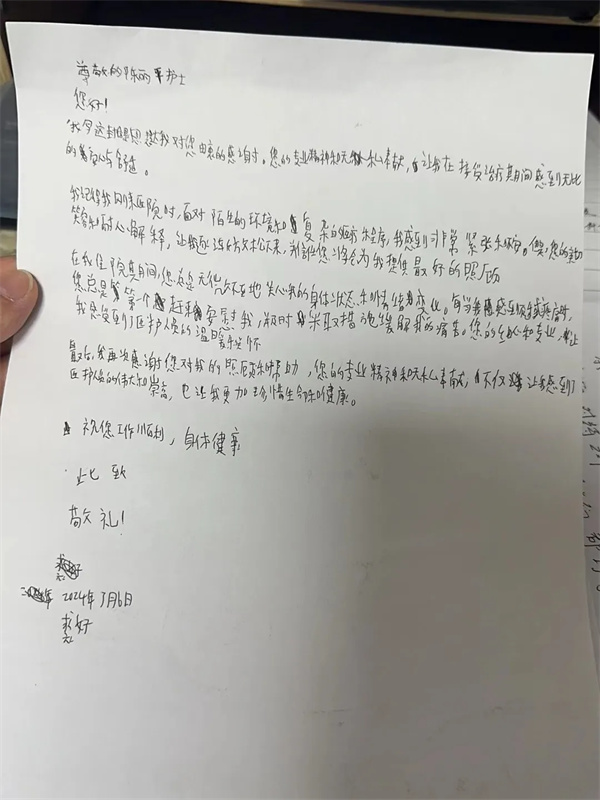 尊敬的陈丽护士
您好!
我写这封信是想表达我对您由衷的感谢。您的专业精神和无私奉献,让我在接受治疗期间感到无比
的安心与舒适。
我记得我刚来医院时,面对陌生的环境和复杂的治疗程序,我感到非常紧张和不安。但是,您的
笑容和耐心解释,让我逐渐放松下来,并
在我住院期间,您总是无微不至地关心我的身体状态和情绪变化。每当我感到疼痛或不适时,
您总是第一个赶来安慰我,及时采取措施缓解我的痛苦。您的关心和专业,让
我感受到了医护人员的温暖和关怀
最后,我再次感谢您对我的照顾和帮助,您的专业精神和无私奉献,不仅让我感到了
医护人员的伟大和崇高,也让我更加珍惜生命和健康。
祝您工作顺利,身体健康
此致
敬礼!
2024年3月6日